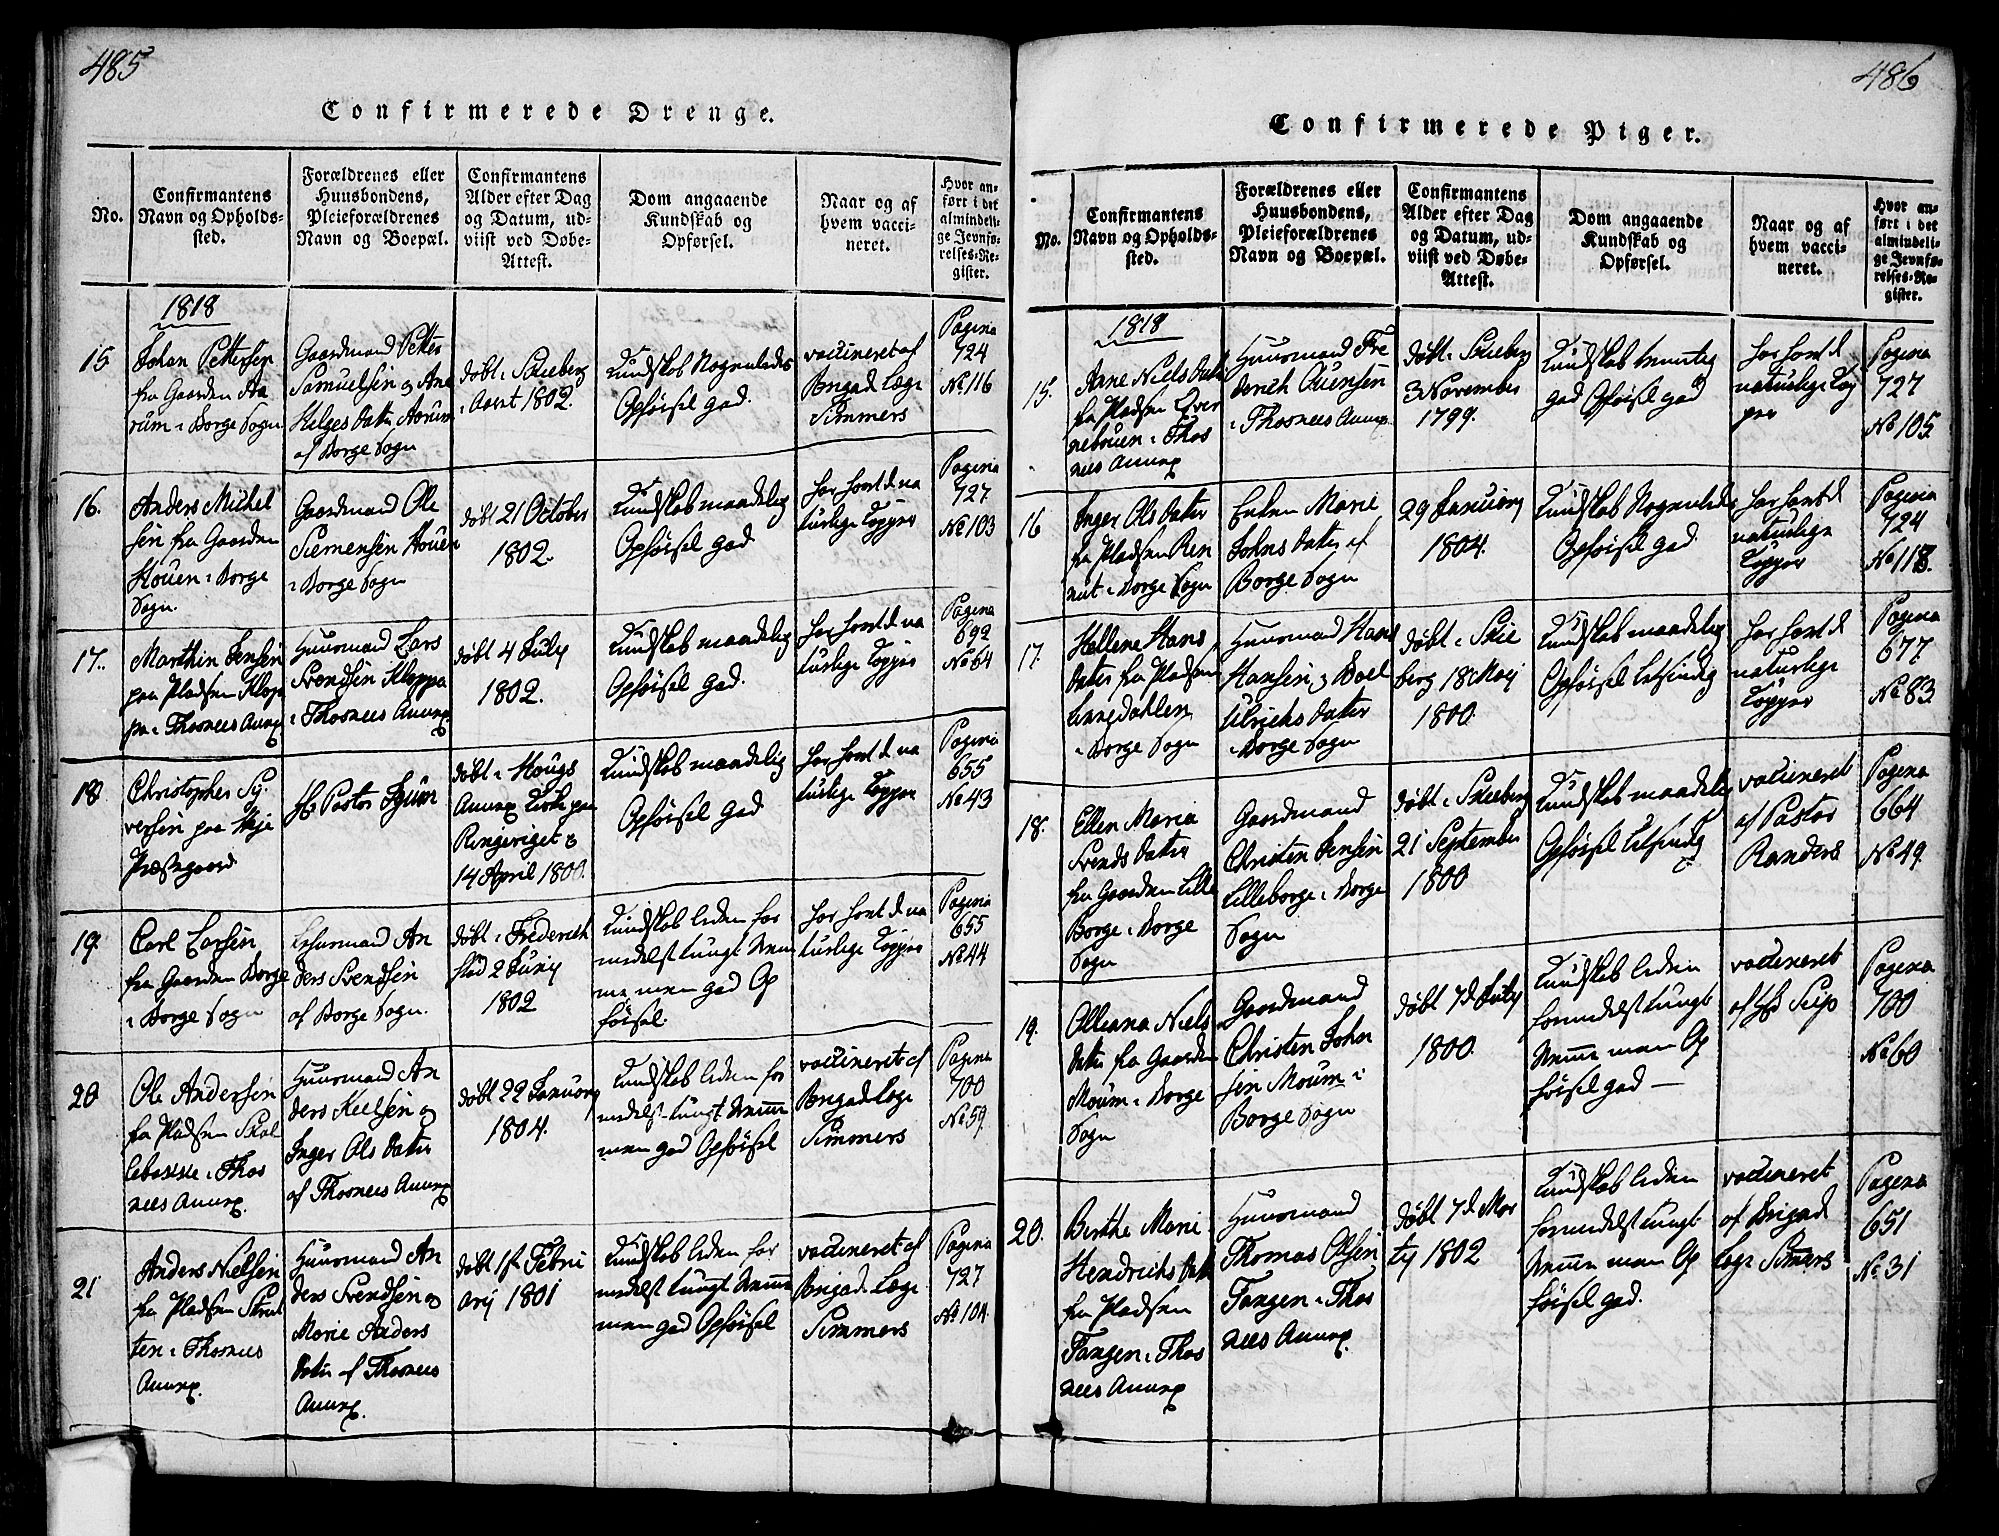 485
Confirmerede Drenge.
No.
Confirmantens
Navn og Opholds-
sted.
Forældrenes eller
Huusbondens,
Pleieforældrenes
Navn og Boepæl.
Confirmantens
Alder efter Dag
og Datum, ud-
viist ved Døbe-
Attest.
Dom angaaende
Kundskab og
Opførsel.
Naar og af
hvem vacci-
neret.
Hvor an-
ført i det
almindeli-
ge Jevnfø-
relses-Re-
gister.
1818
15
Johan Pettersen
fra Gaarden Aa
rum i Borge Sogn
Gaardmand Petter
Samuelsen og Ane
Helges datter Aarum
af Borge Sogn
døbt i Skieberg
i Aaret 1802.
Kundskab Nogenledes
Opførsel god.
vaccineret af
Brigad Læge
Simmers
Pagina
724
No 116
16.
Anders Michel
sen fra Gaarden
Houen i Borge
Sogn.
Gaardmand Ole
Siemensen Houen
i Borge Sogn
døbt 21 October
1802.
Kundskab maadelig
Opførsel god
har havt de na
turlige Kopper
Pagina
727.
No 103
17.
Marthin Jensen
paa Pladsen Klop
pa i Thosnees Annex
Huusmand Lars
Svendsen Kloppa
i Thosnees Annex
døbt 4 July
1802.
Kundskab maadelig
Opførsel god.
har havt de na
turlige Kopper
Pagina
692
No 64
18
Christopher Sy
versen paa
Præstegaard
Hr Pastor
døbt i Hougs
Annex Kirke paa
Ringeriget d
14 April 1800.
Kundskab maadelig
Opførsel god
har havt de na
turlige Kopper
Pagina
655
No 43
19.
Carl Larsen
fra Gaarden Borge
i Borge Sogn
Huusmand An
ders Svendsen
af Borge Sogn.
døbt i Friderich
stad 2 Juny
1802
Kundskab liden for
medelst tungt Nem
me men god Op
førsel.
har havt de na
turlige Kopper
Pagina
655
No 44
20
Ole Andersen
fra Pladsen Skal
lebakke i Thos
nees Annex.
Huusmand An
ders Keelsen og
Inger Ols datter
af Thosnees Annex
døbt 22 January
1804.
Kundskab liden for
medelst tungt Nemme
men god Opførsel
vaccineret af
Brigad Læge
Simmers
Pagina
700
No 59.
21
Anders Nielsen
fra Pladsen
ten i Thosnees
Annex.
Huusmand An
ders Svendsen og
Marie Anders
datter af Thosnees
Annex.
døbt 1ste Febru
ary 1801
Kundskab liden for
medelst tungt Nemme
men god Opførsel
vaccineret af
Brigad Læge
Simmers
Pagina
727
No 104.
486
Confirmerede Piger.
No.
Confirmantens
Navn og Opholds-
sted.
Forældrenes eller
Huusbondens,
Pleieforældrenes
Navn og Boepæl.
Confirmantens
Alder efter Dag
og Datum, ud-
viist ved Døbe-
Attest.
Dom angaaende
Kundskab og
Opførsel.
Naar og af
hvem vacci-
neret.
Hvor an-
ført i det
almindeli-
ge Jevnfø-
relses-Re-
gister.
1818
15.
Anne Niels datter
fra Pladsen Qver
nebruen i Thos
nees Annex
Huusmand Fre
derich Evensen
i Thosnees Annex.
døbt i Skieberg
3 November
1799.
Kundskab temmelig
god Opførsel god
har havt de
naturlige Kop
per
Pagina
727
No 105.
16
Inger Ols datter
fra Pladsen
i Borge Sogn
Enken Marie
Johns datter af
Borge Sogn
29 January
1804.
Kundskab Nogenledes
Opførsel god.
har havt de
naturlige
Kopper
Pagina
724
No 118.
17.
Hellene Hans
datter fra Pladsen
Lunnedahlen
i Borge Sogn
Huusmand Hans
Hansen og Boel
Ulrichs datter
i Borge Sogn
døbt i Skie
berg 18 May
1800.
Kundskab maadelig
Opførsel Besindig
har havt de
naturlige
Kopper
Pagina
677.
No 83.
18.
Ellen Maria
Svends datter
fra Gaarden Lille
Borge i Borge
Sogn
Gaardmand
Christen Jensen
Lilleborge i Borge
Sogn
døbt i Skieberg
21 September
1800
Kundskab maadelig
Opførsel Besindig
vaccineret
af Pastor
Randers
Pagina
664
No 49.
19.
Olleana Niels
datter fra Gaarden
Moum i Borge
Sogn
Gaardmand
Christen John
sen Moum i
Borge Sogn
døbt 7de July
1800.
Kundskab liden
formedelst tungt
Nemme men Op
førsel god —
vaccineret
af Hr Seip
Pagina
700
No 60
20.
Berthe Marie
Hendrichs datter
fra Pladsen
Tangen i Thos
nees Annex
Huusmand
Thomas Olsen
Tangen i Thos
nees Annex.
døbt 7de Mar
ty 1802
Kundskab liden
formedelst tungt
Nemme men Op
førsel god.
vaccineret
af Brigad
Læge Simers
Pagina
651
No 31